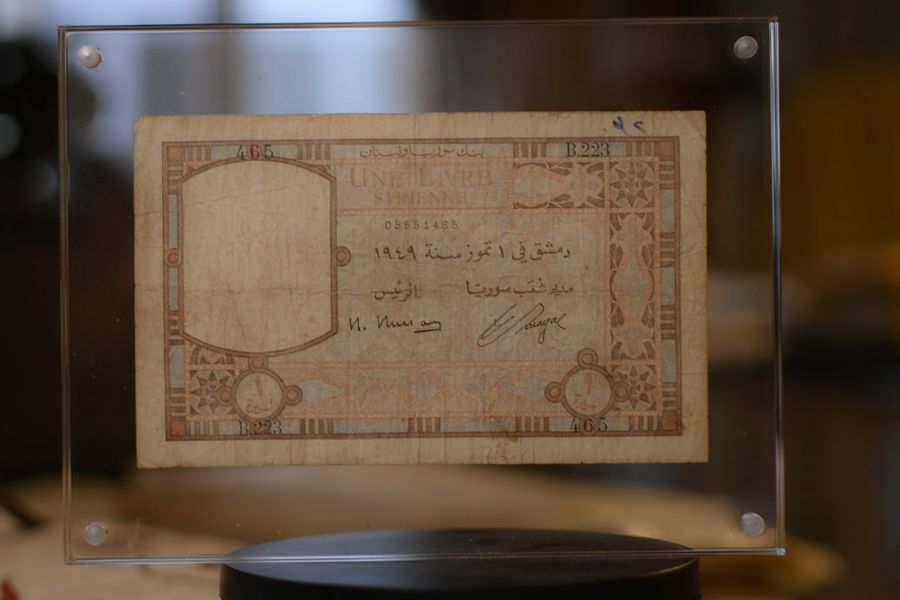 465
بنك سوريا ولبنان
B.223
UNE LIVRE
SYRIENNE
05551465
دمشق في ١ تموز سنة ١٩٤٩
الرئيس مدير شعب سوريا
١ ١
B.223
465